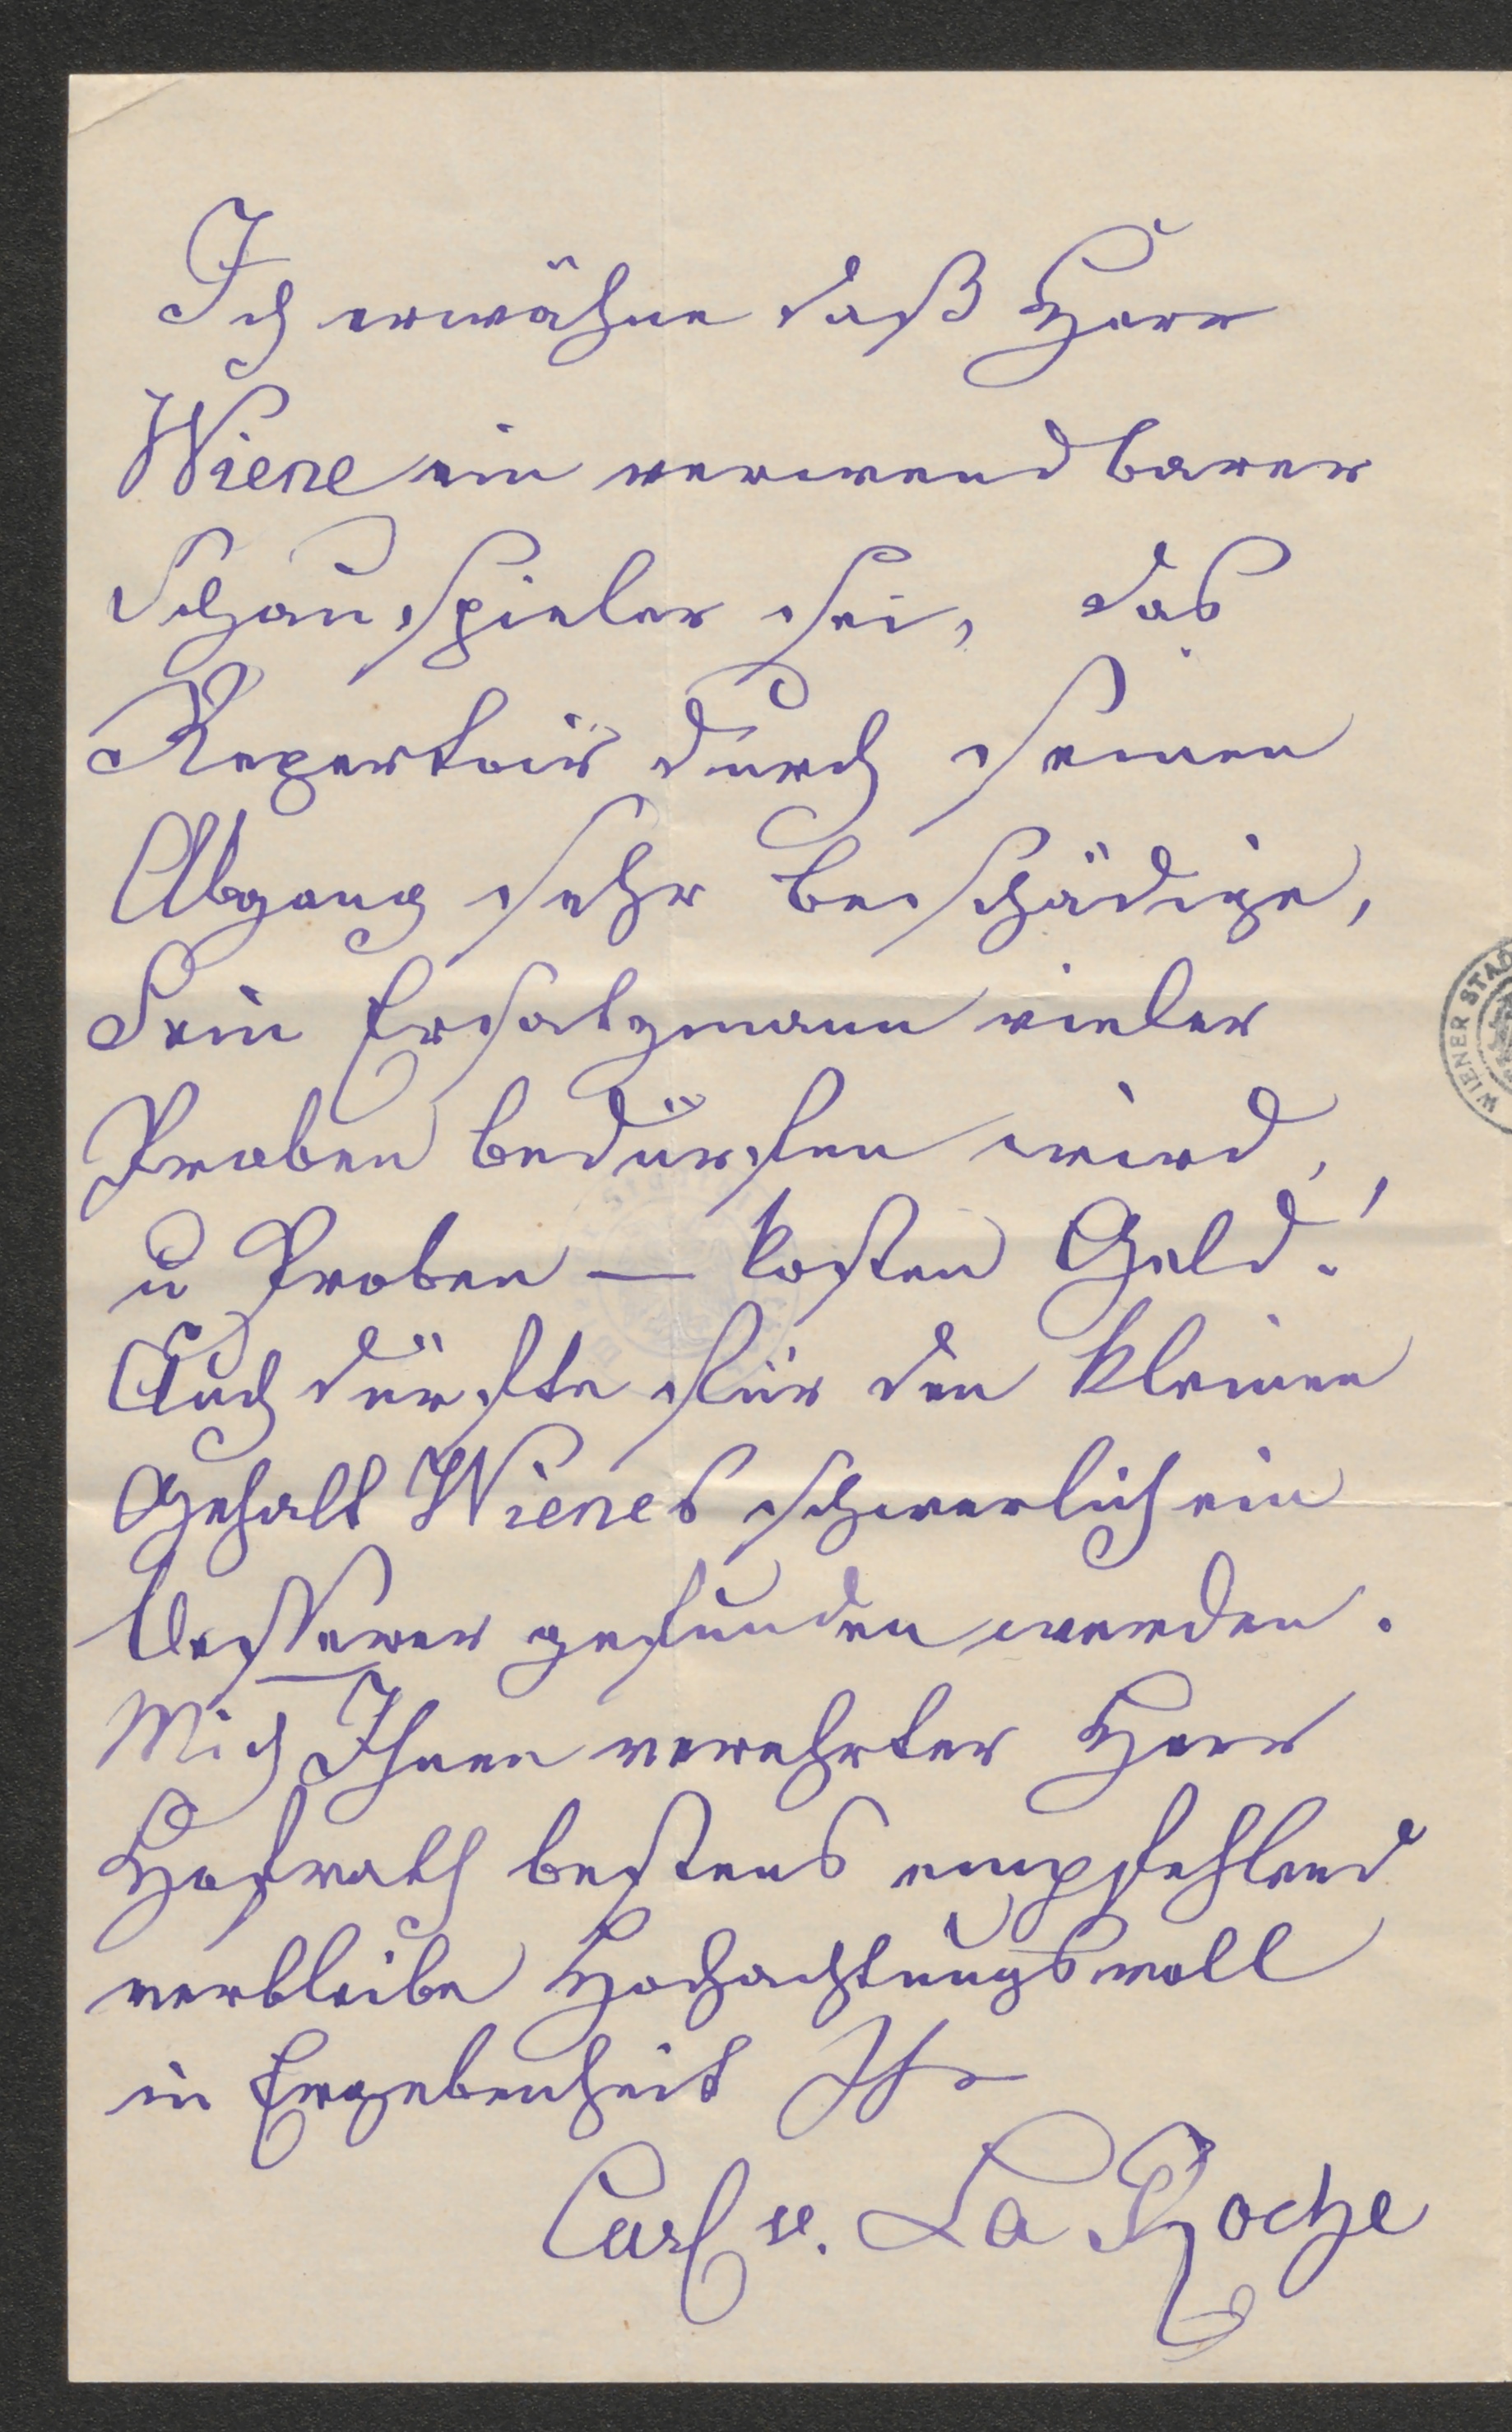 Ich erwähne daß Herr
Wiene ein verwendbarer
Schauspieler sei, das
Repertoir durch seinen
Abgang sehr beschädige,
Sein Ersatzmann vieler
Proben bedürfen wird,
u Proben — kosten Geld!
Auch dürfte für den kleinen
Gehalt Wienes schwerlich ein
Besserer gefunden werden.
Mich Ihnen verehrter Herr
Hofrath bestens empfehlend
verbleibe Hochachtungsvoll
in Ergebenheit Ihr
Carl v. La Roche
WIENER STAD